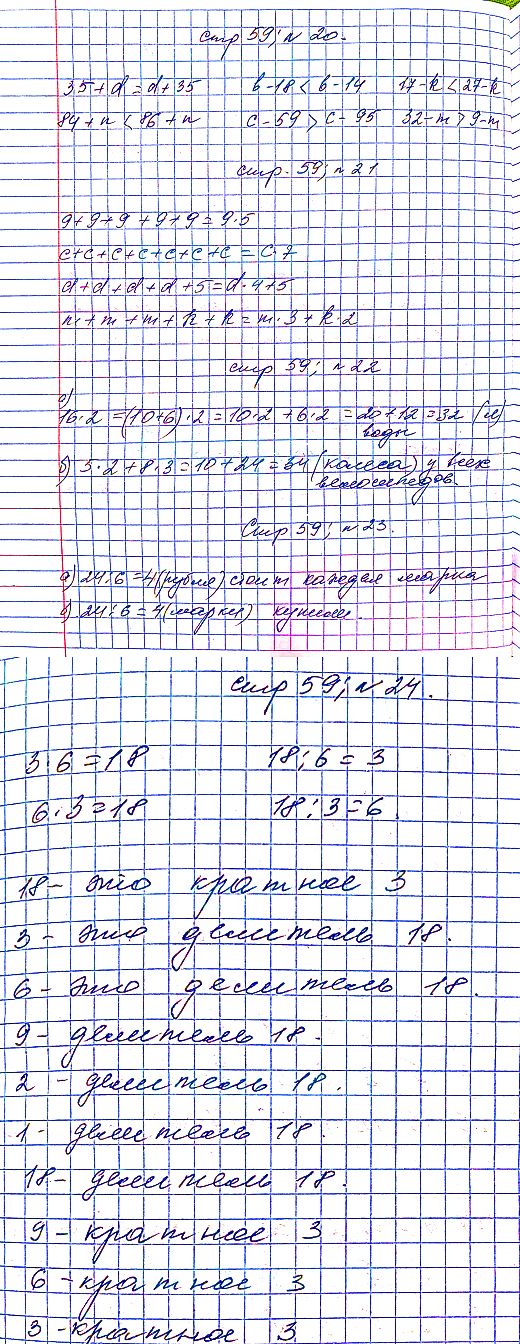 стр 59; n 20.
35+d=d+35 b-18<b-14 17-k<27-k
84+n<86+n c-59>c-95 32-m>9-m
стр. 59; n 21
9+9+9+9+9=9·5
c+c+c+c+c+c+c=c·7
d+d+d+d+5=d·4+5
m+m+m+k+k=m·3+k·2
стр 59; n 22
а)
16·2=(10+6)·2=10·2+6·2=20+12=32 (л)
воды
б) 5·2+8·3=10+24=34 (колеса) у всех
велосипедов.
Стр 59; n 23.
а) 24:6=4(рубля) стоит каждая марка
б) 24:6=4(марки) купили.
стр 59; n 24.
3·6=18 18:6=3
6·3=18 18:3=6.
18- это кратное 3
3- это делитель 18.
6- это делитель 18.
9- делитель 18.
2- делитель 18.
1- делитель 18.
18- делитель 18.
9- кратное 3
6-кратное 3
3-кратное 3